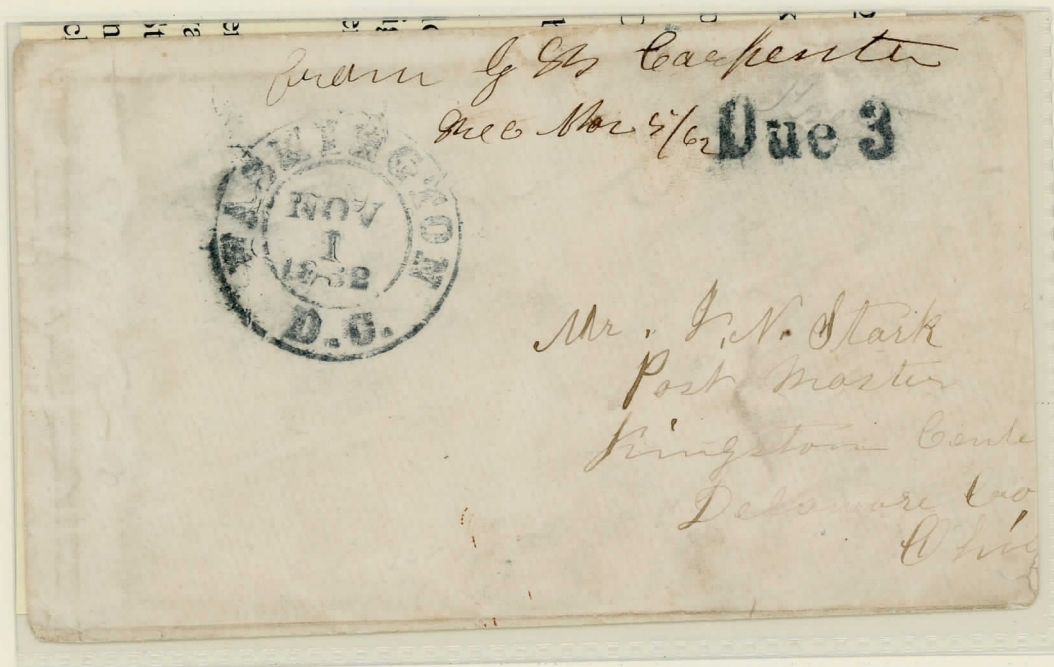 from G W Carpenter
Rec Nov 5/62
Due 3
WASHINGTON
NOV
1
1862
D.C.
Mr. J. N. Stark
Post Master
Kingston Cente
Delaware Coo
Ohio